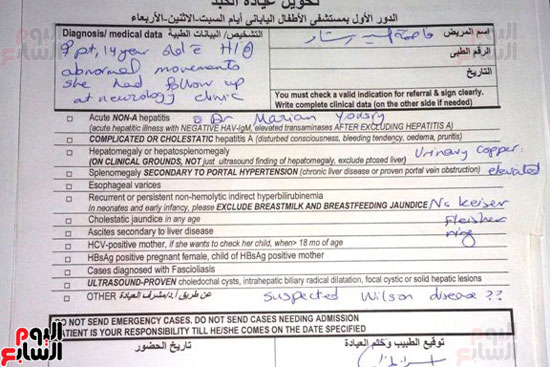 تحويل عيادة الكبد
الدور الأول بمستشفى الأطفال الياباني أيام السبت-الاثنين-الأربعاء
Diagnosis/ medical data التشخيص/ البيانات الطبية
اسم المريض
pt, 14 year old c̄ H/O
الرقم الطبي
abnormal movements
التاريخ
she had follow up
at neurology clinic
You must check a valid indication for referral & sign clearly.
Write complete clinical data (on the other side if needed)
Acute NON-A hepatitis Dr Marian Yousry
(acute hepatitic illness with NEGATIVE HAV-IgM, elevated transaminases AFTER EXCLUDING HEPATITIS A)
COMPLICATED OR CHOLESTATIC hepatitis A (disturbed consciousness, bleeding tendency, oedema, pruritis)
Hepatomegaly or hepatosplenomegaly Urinary copper:
(ON CLINICAL GROUNDS, NOT just ultrasound finding of hepatomegaly, exclude ptosed liver)
Splenomegaly SECONDARY TO PORTAL HYPERTENSION (chronic liver disease or proven portal vein obstruction) elevated
Esophageal varices
Recurrent or persistent non-hemolytic indirect hyperbilirubinemia
In neonates and early infancy, please EXCLUDE BREASTMILK AND BREASTFEEDING JAUNDICE No keiser
Cholestatic jaundice in any age fleisher
Ascites secondary to liver disease ring
HCV-positive mother, if she wants to check her child, when> 18 mo of age
HBsAg positive pregnant female, child of HBsAg positive mother
Cases diagnosed with Fascioliasis
ULTRASOUND-PROVEN choledochal cysts, intrahepatic biliary radical dilatation, focal cystic or solid hepatic lesions
OTHER عن طريق أ.د/مشرف العيادة suspected Wilson disease ??
DO NOT SEND EMERGENCY CASES. DO NOT SEND CASES NEEDING ADMISSION
PATIENT IS YOUR RESPONSIBILITY TILL HE/SHE COMES ON THE DATE SPECIFIED
تاريخ الحضور توقيع الطبيب وختم العيادة
اليوم السابع
اليوم السابع